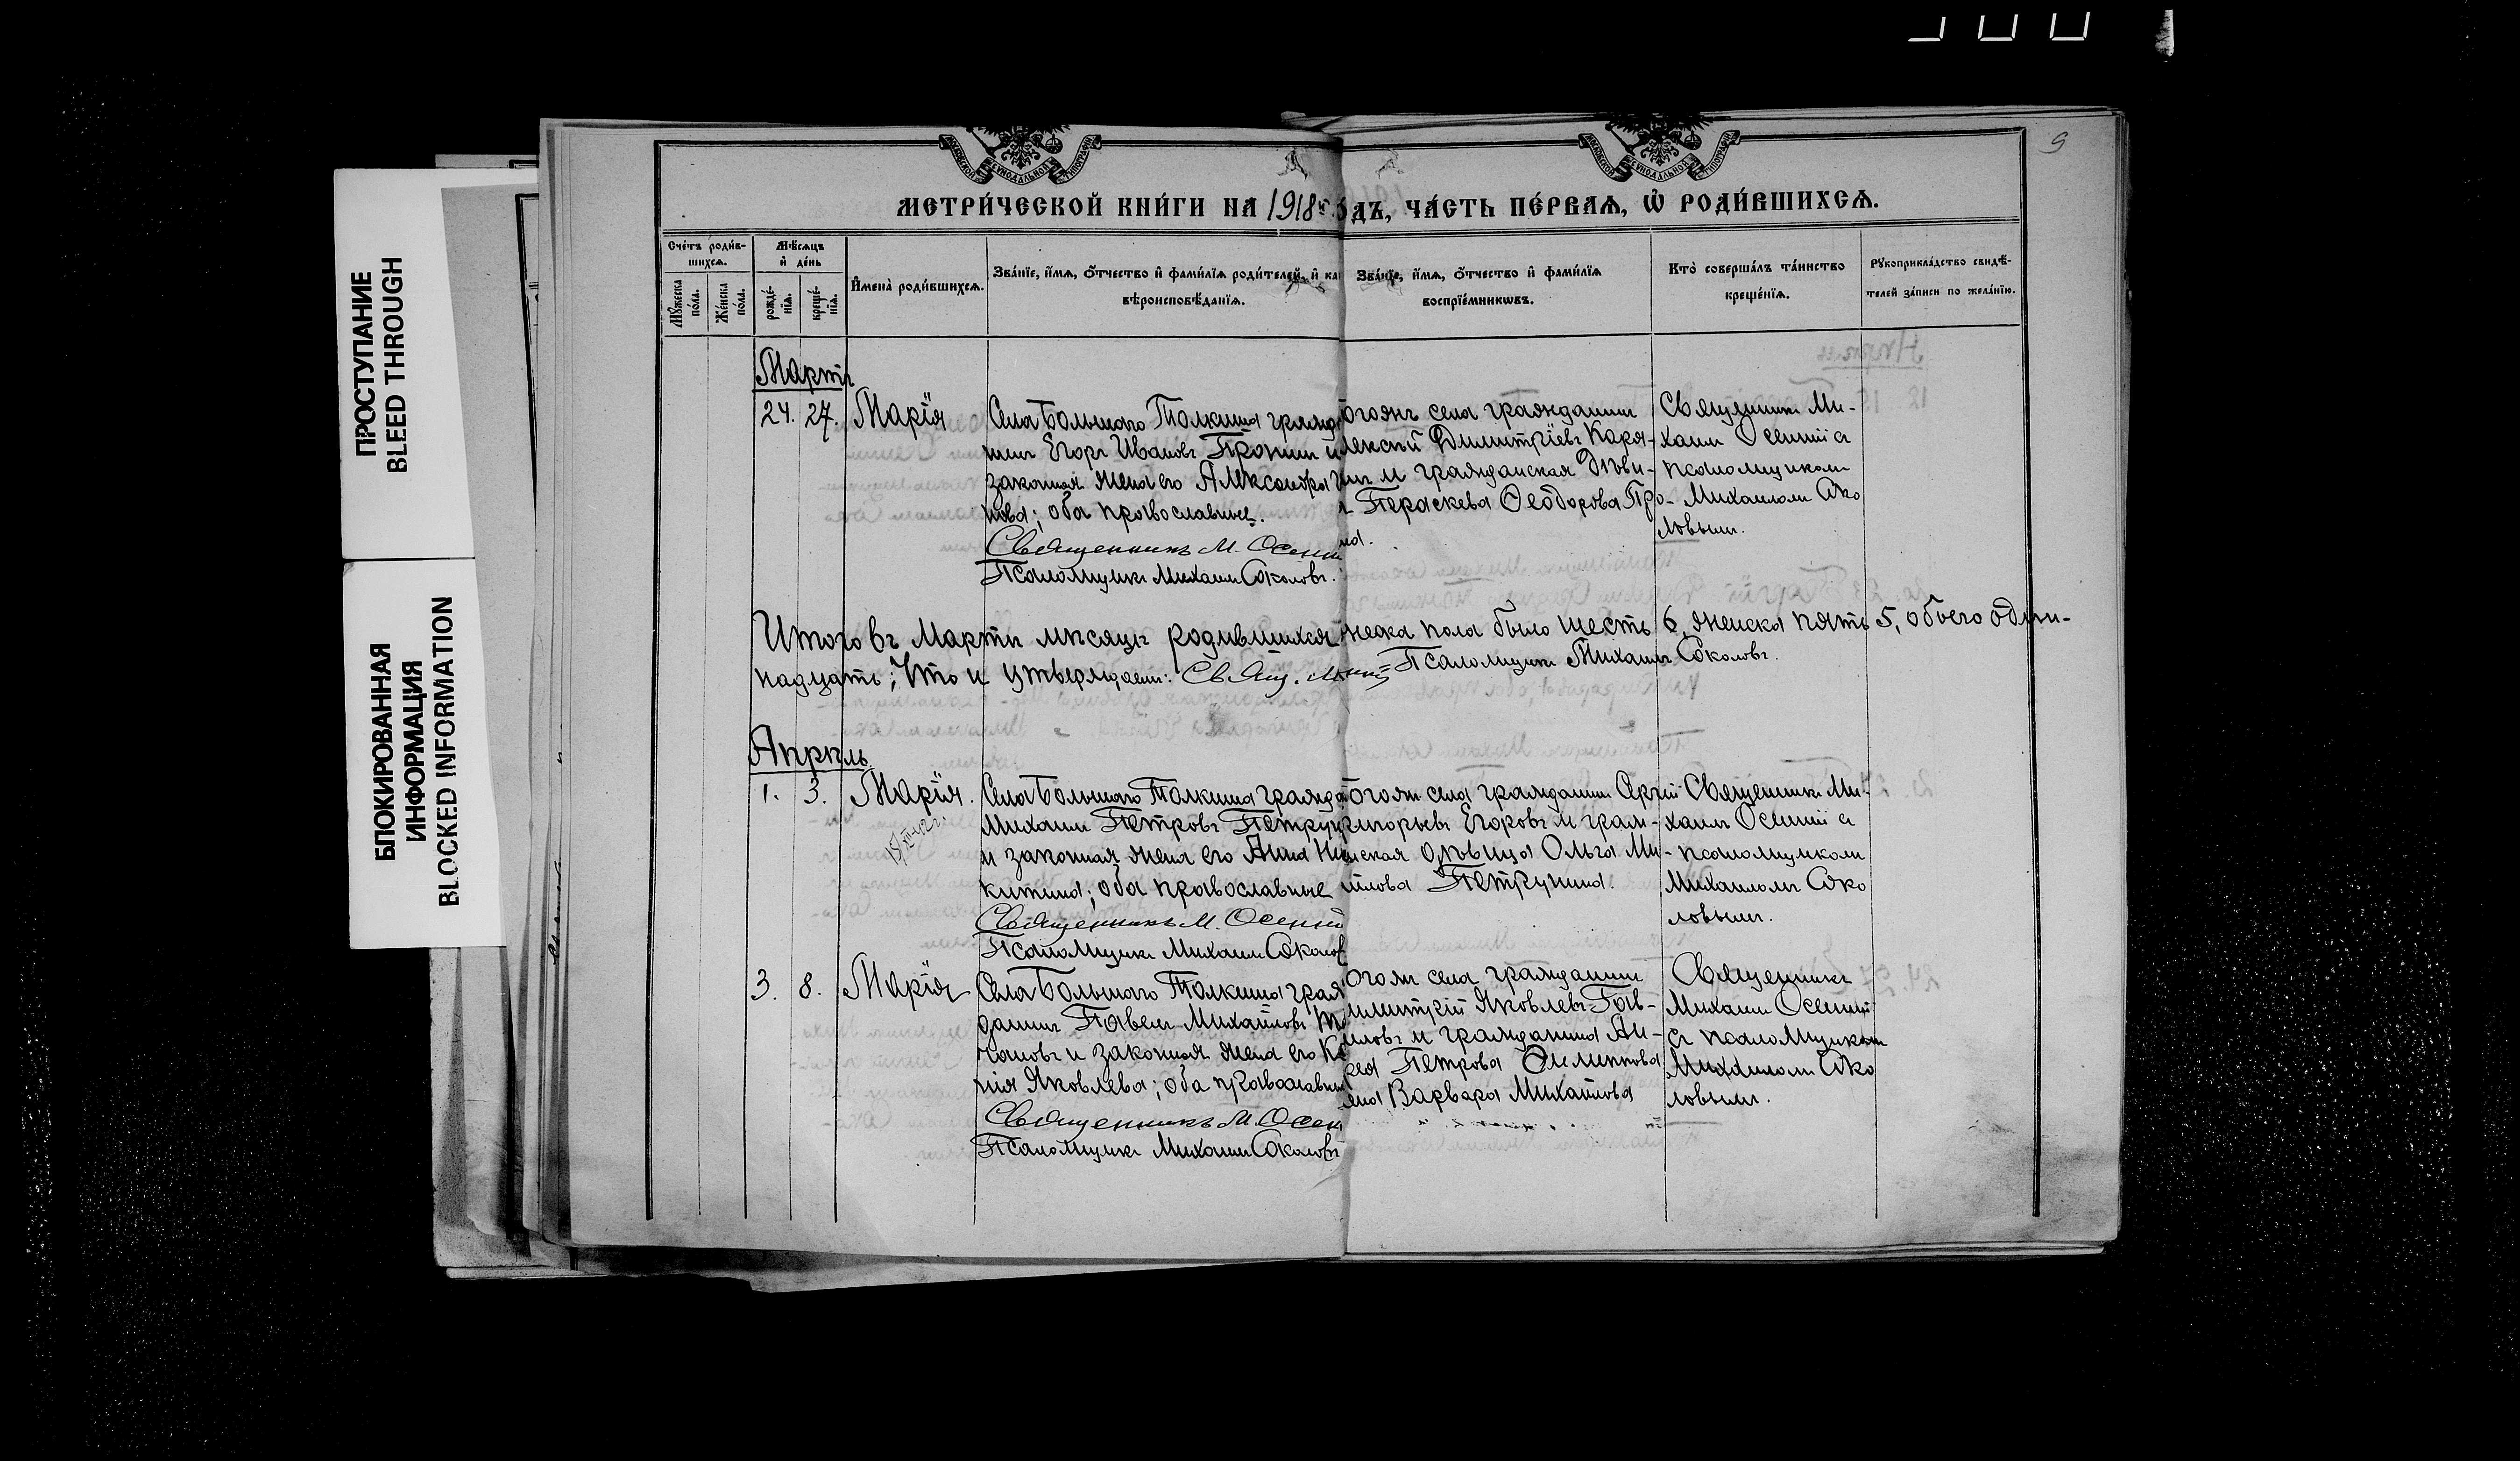 ПРОСТУПАНИЕ
BLEED THROUGH
БЛОКИРОВАННАЯ
ИНФОРМАЦИЯ
BLOCKED INFORMATION
9
МОСКОВСКОЙ СѴНОДАЛЬНОЙ ТИПОГРАФІИ
МОСКОВСКОЙ СѴНОДАЛЬНОЙ ТИПОГРАФІИ
МЕТРИ́ЧЕСКОЙ КНИ́ГИ НА 1918 й дъ, ЧА́СТЬ ПЕ́РВАѦ, Ѡ҆ РОДИ́ВШИХСѦ.
Сче́тъ роди́в-
шихсѧ.
Мꙋ́жеска по́ла.
Же́нска по́ла.
Мѣ́сѧцъ
и҆ де́нь
рожде́-
нїѧ.
креще́-
нїѧ.
И҆мена̀ роди́вшихсѧ.
Зва́нїе, и҆́мѧ, ѻ҆́тчество и҆ фами́лїѧ роди́телей, и҆ ка
вѣроисповѣ́данїѧ.
Зва́нїе, и҆́мѧ, ѻ҆́тчество и҆ фами́лїѧ
воспрїе́мникѡвъ.
Кто̀ соверша́лъ та́инство
креще́нїѧ.
Рꙋкоприкла́дство свидѣ́-
телей за́писи по жела́нїю.
Мартъ
24. 27. Марія
Села Большаго Толкиша гражд
нинъ Егоръ Ивановъ Пронин и
законная жена его Александра
нова; оба православные.
Священникъ М. Осенн
Псаломщикъ Михаилъ Соколовъ.
огоже села гражданин
лексѣй Димитріевъ Каря-
инъ и гражданская дѣви-
Параскева Ѳеодорова Про-
на.
Священникъ Ми-
хаилъ Осенній съ
псаломщикомъ
Михаиломъ Соко
ловымъ.
Итого въ Мартѣ мѣсяцѣ родившихся жеска пола было шесть 6, женска пять 5, обоего один-
надцать; Что и утверждаемъ: Свящ. Псаломщикъ Михаилъ Соколовъ.
Апрѣль
1. 3. Марія.
Села Большаго Толкиша гражда
Михаилъ Петровъ Петрун
и законная жена его Анна Ни
китина; оба православные
Священникъ М. Осенній
Псаломщикъ Михаилъ Соколов
огож села гражданин
ригорьевъ Егоровъ и граж-
нская дѣвица Ольга Ми-
илова Петрунина.
Священникъ Ми-
хаилъ Осенній съ
псаломщикомъ
Михаиломъ Соко
ловымъ.
3. 8. Марія
Села Большаго Толкиша граж
данинъ Павелъ Михайловъ
и законная жена его
нія Яковлева; оба православны
Священникъ М. Осен
Псаломщикъ Михаилъ Соколовъ
огож села гражданин
имитрій Яковлевъ Гав-
иловъ и гражданина Ан-
рея Петрова
ена Варвара Михайлова
Священникъ
Михаилъ Осенній
съ псаломщиком
Михаиломъ Соко
ловымъ.